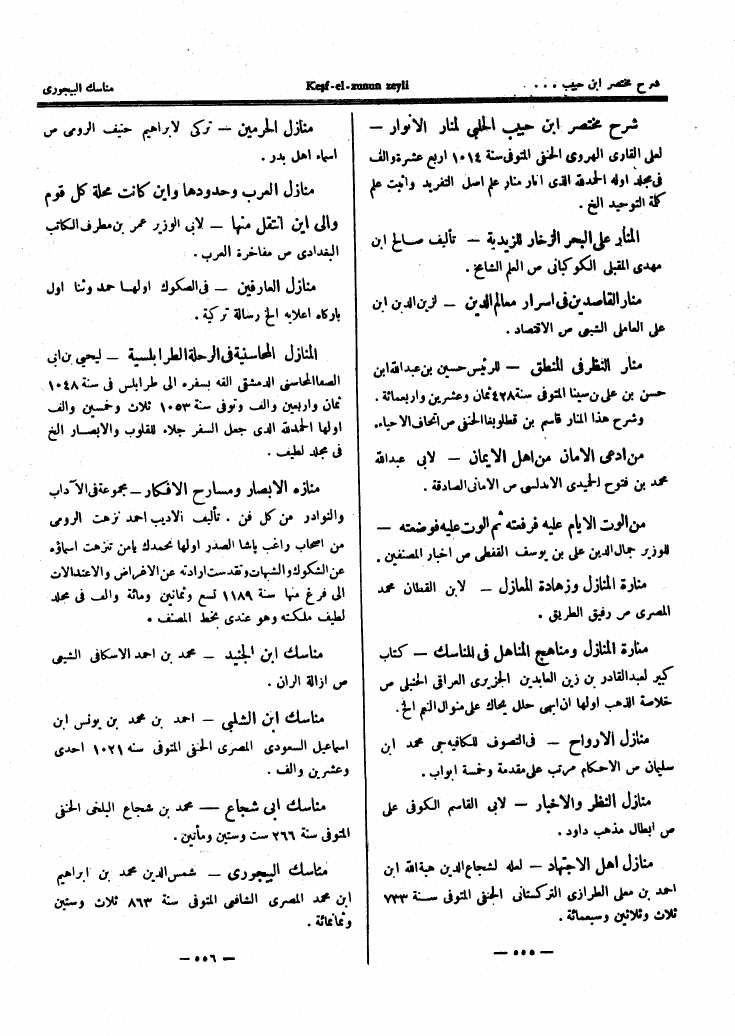 شرح مختصر ابن حبيب . . .
Keşf-el-zunun zeyli
مناسك البيجورى
شرح مختصر ابن حبيب الحلبى لمنار الانوار —
لعلى القارى الهروى الحنفى المتوفى سنة ١٠١٤ اربع عشرة والف
فى مجلد اوله الحمدلله الذى انار منار علم اصل التفريد واثبت علم
كلة التوحيد الخ .
المنار على البحر الزخار للزيدية — تأليف صالح ابن
مهدى المقبلى الكوكبانى ص العلم الشامخ .
منار القاصدين فى اسرار معالم الدين — لزين الدين ابن
على العاملى الشيعى ص الاقتصاد .
منار النظر فى المنطق — للرئيس حسين بن عبدالله ابن
حسن بن على بن سينا المتوفى سنة ٤٢٨ ثمان وعشرين واربعمائة .
وشرح هذا المنار قاسم بن قطلوبغا الحنفى ص اتحاف الاحياء.
من ادعى الامان من اهل الايمان — لابى عبدالله
محمد بن فتوح الحميدى الاندلسى ص الامانى الصادقة .
من الوت الايام عليه فرفعته ثم الوت عليه فوضعته —
للوزير جمال الدين على بن يوسف القفطى ص اخبار المصنفين .
منارة المنازل وزهادة المعازل — لابن القطان محمد
المصرى ص رفيق الطريق .
منارة المنازل ومناهج المناهل فى المناسك — كتاب
كبير لعبدالقادر بن زين العابدين الجزيرى العراقى الحنبلى ص
خلاصة الذهب اولها ان ابهى حلل يحاك على منوال النيم الخ.
منازل الارواح — فى التصوف للكافيه جى محمد ابن
سليمان ص الاحكام مرتب على مقدمة وخمسة ابواب .
منازل النظر والاخبار — لابى القاسم الكوفى على
ص ابطال مذهب داود .
منازل اهل الاجتهاد — لعله لشجاع الدين هبة الله ابن
احمد بن معلى الطرازى التركستانى الحنفى المتوفى سنة ٧٣٣
ثلاث وثلاثين وسبعمائة .
— ٥٥٥ —
منازل الحرمين — تركى لابراهيم حنيف الرومى ص
اسماء اهل بدر .
منازل العرب وحدودها واين كانت محلة كل قوم
والى اين انتقل منها — لابى الوزير عمر بن مطرف الكاتب
البغدادى ص مفاخرة العرب .
منازل العارفين — فى الصكوك اولها حمد وثنا اول
باركاه اعلايه الخ رسالة تركية .
المنازل المحاسنية فى الرحلة الطرابلسية — ليحيى بن ابى
الصفا المحاسنى الدمشقى الفه بسفره الى طرابلس فى سنة ١٠٤٨
ثمان واربعين والف وتوفى سنة ١٠٥٣ ثلاث وخمسين والف
اولها الحمدلله الذى جعل السفر جلاء للقلوب والابصار الخ
فى مجلد لطيف .
منازه الابصار ومسارح الافكار — مجموعة فى الآداب
والنوادر من كل فن . تأليف الاديب احمد نزهت الرومى
من اصحاب راغب پاشا الصدر اولها نحمدك يامن تنزهت اسماؤه
عن الشكوك والشبهات وتقدست ارادته عن الاغراض والاعتدالات
الى فرغ منها سنة ١١٨٩ تسع وثمانين ومائة والف فى مجلد
لطيف ملكته وهو عندى بخط المصنف .
مناسك ابن الجنيد — محمد بن احمد الاسكافى الشيعى
ص ازالة الران .
مناسك ابن الشلبى — احمد بن محمد بن يونس ابن
اسماعيل السعودى المصرى الحنفى المتوفى سنه ١٠٢١ احدى
وعشرين والف .
مناسك ابى شجاع — محمد بن شجاع البلخى الحنفى
المتوفى سنة ٢٦٦ ست وستين ومأتين .
مناسك البيجورى — شمس الدين محمد بن ابراهيم
ابن محمد المصرى الشافعى المتوفى سنة ٨٦٣ ثلاث وستين
وثمانمائة .
— ٥٥٦ —